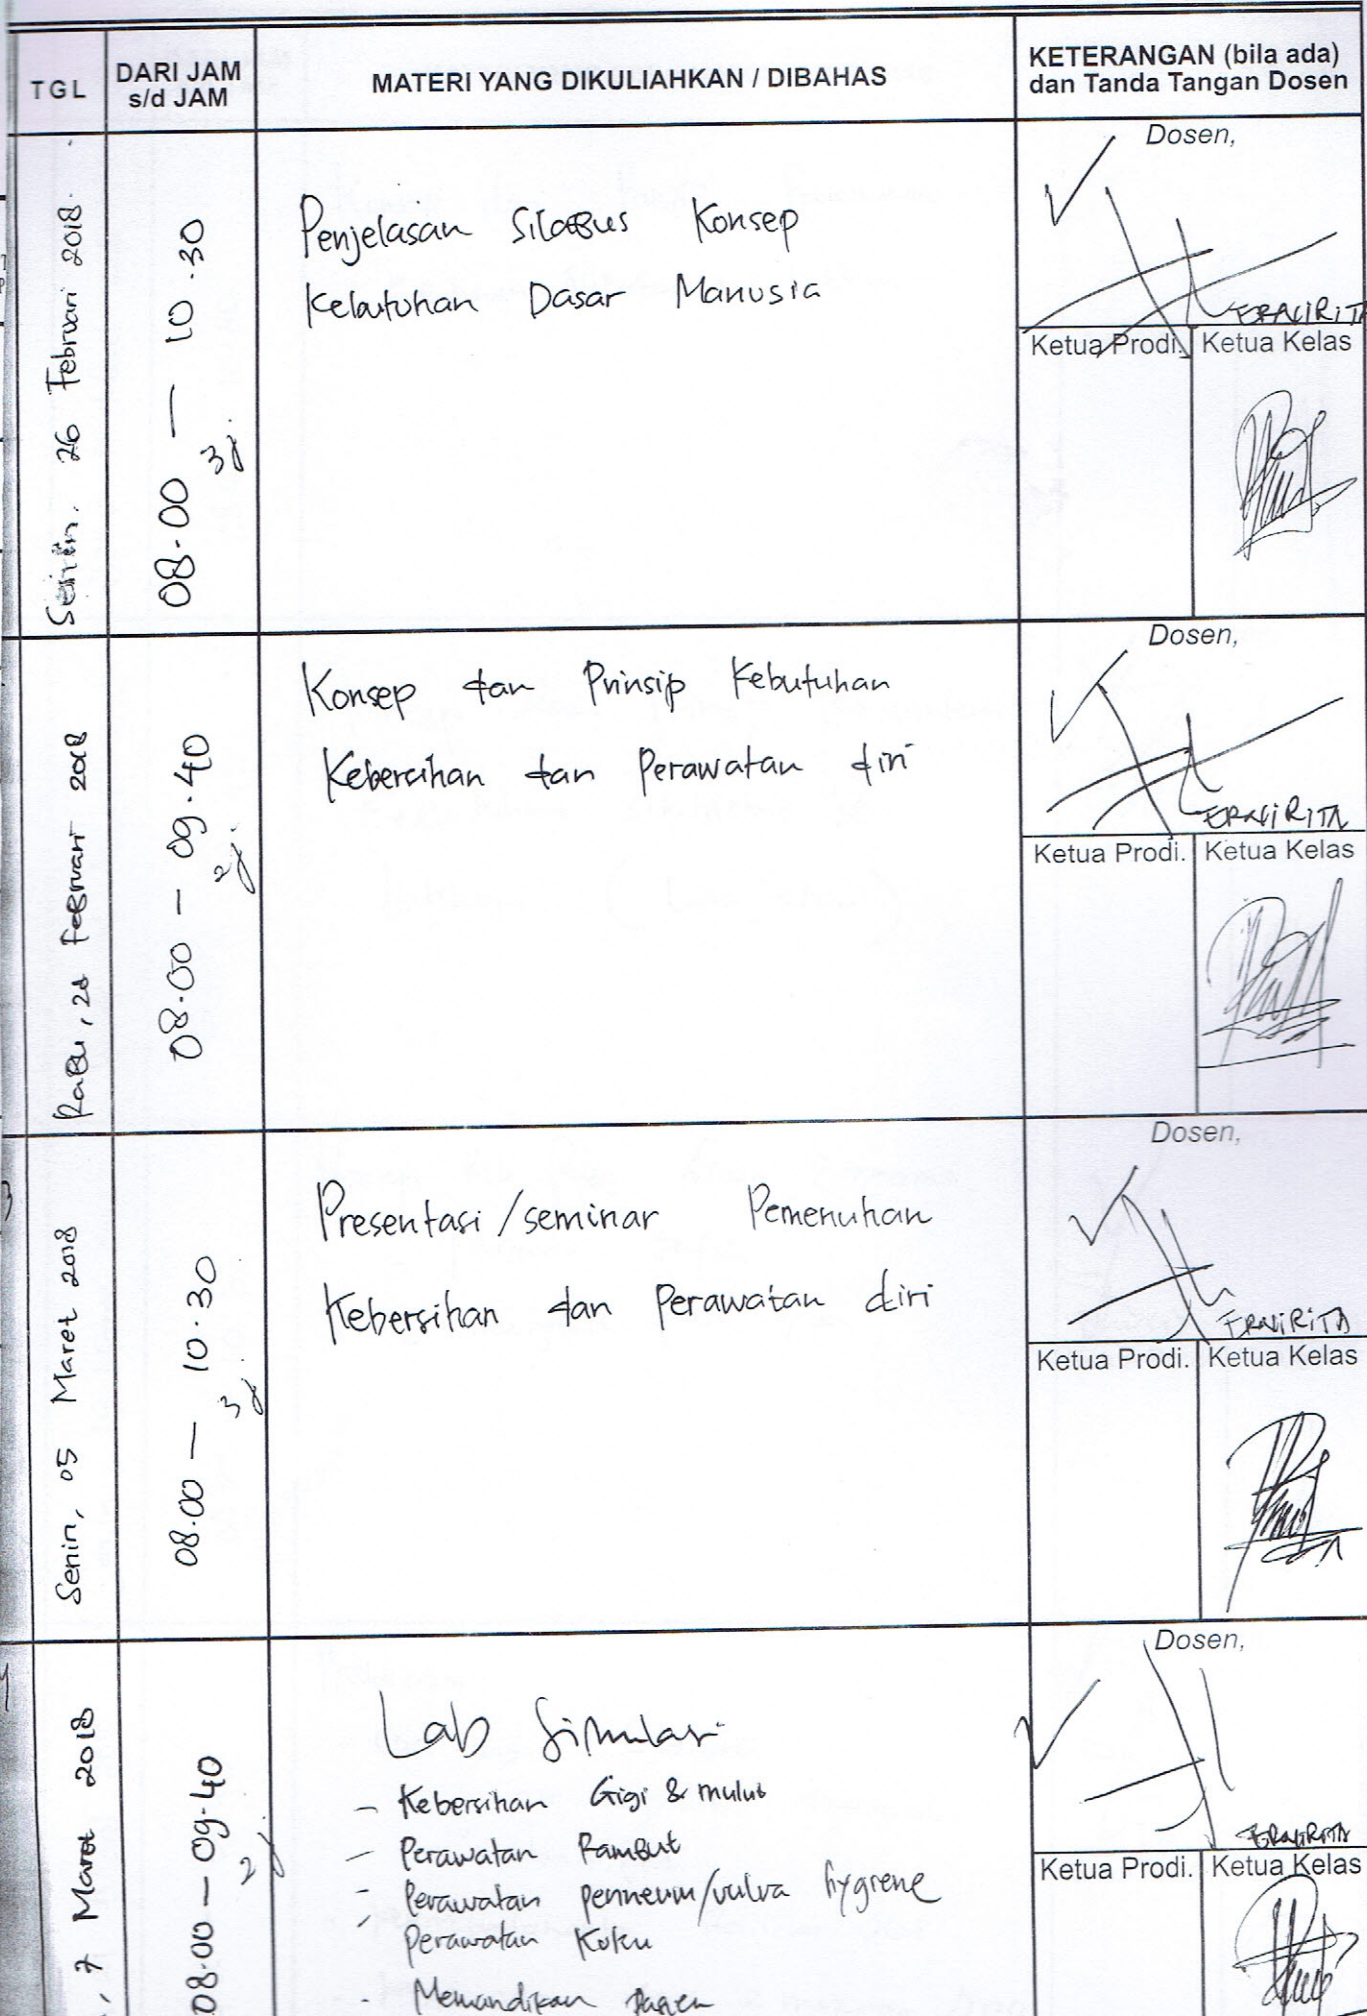 TGL
DARI JAM
s/d JAM
MATERI YANG DIKULIAHKAN / DIBAHAS
KETERANGAN (bila ada)
dan Tanda Tangan Dosen
Senin, 26 Februari 2018
08.00 — 10.30
3j.
Penjelasan Silabus Konsep
Kebutuhan Dasar Manusia
Dosen,
ERNIRITA
Ketua Prodi.
Ketua Kelas
Rabu, 28 Februari 2018
08.00 — 09.40
2j.
Konsep dan Prinsip Kebutuhan
Kebersihan dan Perawatan diri
Dosen,
ERNIRITA
Ketua Prodi.
Ketua Kelas
Senin, 05 Maret 2018
08.00 — 10.30
3j.
Presentasi/seminar Pemenuhan
Kebersihan dan Perawatan diri
Dosen,
ERNIRITA
Ketua Prodi.
Ketua Kelas
, 7 Maret 2018
08.00 — 09.40
2j.
Lab Simulasi
- Kebersihan Gigi & mulut
- Perawatan Rambut
- Perawatan perineum/vulva hygiene
- Perawatan Kuku
- Memandikan Pasien
Dosen,
ERNIRITA
Ketua Prodi.
Ketua Kelas